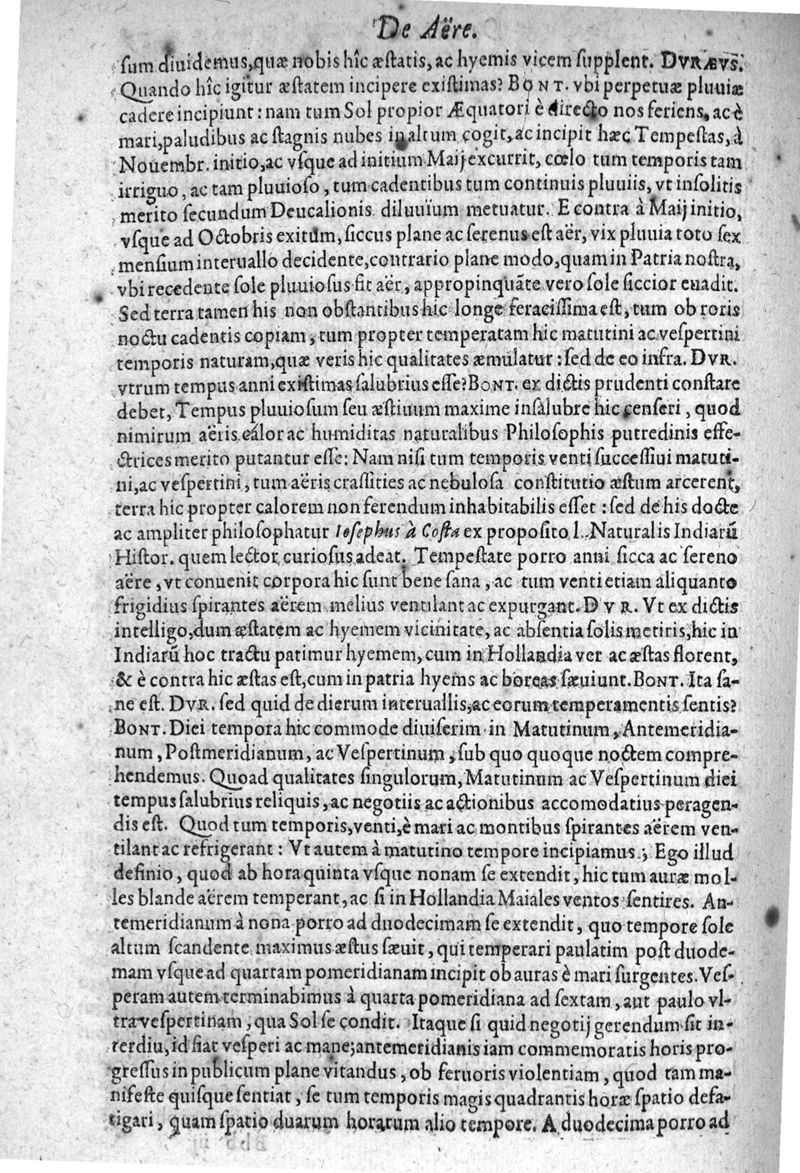 De Aëre.
sum diuidemus, quæ nobis hîc æstatis, ac hyemis vicem supplent. DVRÆVS.
Quando hîc igitur æstatem incipere existimas? BONT. vbi perpetuæ pluuiæ
cadere incipiunt: nam tum Sol propior Æquatori è directo nos feriens, ac è
mari, paludibus ac stagnis nubes in altum cogit, ac incipit hæc Tempestas, à
Nouembr. initio, ac vsque ad initium Maij excurrit, cœlo tum temporis tam
irriguo, ac tam pluuioso, tum cadentibus tum continuis pluuiis, vt insolitis
merito secundum Deucalionis diluuïum metuatur. E contra à Maij initio,
vsque ad Octobris exitum, siccus plane ac serenus est aër, vix pluuia toto sex
mensium interuallo decidente, contrario plane modo, quam in Patria nostra,
vbi recedente sole pluuiosus fit aër, appropinquãte vero sole siccior euadit.
Sed terra tamen his non obstantibus hic longe feracissima est, tum ob roris
noctu cadentis copiam, tum propter temperatam hic matutini ac vespertini
temporis naturam, quæ veris hic qualitates æmulatur: sed de eo infra. DVR.
vtrum tempus anni existimas salubrius esse? BONT. ex dictis prudenti constare
debet, Tempus pluuiosum seu æstiuum maxime insalubre hic censeri, quod
nimirum aëris calor ac humiditas naturalibus Philosophis putredinis effe-
ctrices merito putantur esse: Nam nisi tum temporis venti successiui matuti-
ni, ac vespertini, tum aëris crassities ac nebulosa constitutio æstum arcerent,
terra hic propter calorem non ferendum inhabitabilis esset: sed de his docte
ac ampliter philosophatur Iosephus à Costa ex proposito l.. Naturalis Indiarũ
Histor. quem lector curiosus adeat. Tempestate porro anni sicca ac sereno
aëre, vt conuenit corpora hic sunt bene sana, ac tum venti etiam aliquanto
frigidius spirantes aërem melius ventilant ac expurgant. DVR. Vt ex dictis
intelligo, dum æstatem ac hyemem vicinitate, ac absentia solis metiris, hic in
Indiarũ hoc tractu patimur hyemem, cum in Hollandia ver ac æstas florent,
& è contra hic æstas est, cum in patria hyems ac boreas sæuiunt. BONT. Ita sa-
ne est. DVR. sed quid de dierum interuallis, ac eorum temperamentis sentis?
BONT. Diei tempora hic commode diuiserim in Matutinum, Antemeridia-
num, Postmeridianum, ac Vespertinum, sub quo quoque noctem compre-
hendemus. Quoad qualitates singulorum, Matutinum ac Vespertinum diei
tempus salubrius reliquis, ac negotiis ac actionibus accomodatius peragen-
dis est. Quod tum temporis, venti, è mari ac montibus spirantes aërem ven-
tilant ac refrigerant: Vt autem à matutino tempore incipiamus; Ego illud
definio, quod ab hora quinta vsque nonam se extendit, hic tum auræ mol-
les blande aërem temperant, ac si in Hollandia Maiales ventos sentires. An-
temeridianum à nona porro ad duodecimam se extendit, quo tempore sole
altum scandente maximus æstus sæuit, qui temperari paulatim post duode-
mam vsque ad quartam pomeridianam incipit ob auras è mari surgentes. Ves-
peram autem terminabimus à quarta pomeridiana ad sextam, aut paulo vl-
tra vespertinam, qua Sol se condit. Itaque si quid negotij gerendum sit in-
terdiu, id fiat vesperi ac mane; antemeridianis iam commemoratis horis pro-
gressus in publicum plane vitandus, ob feruoris violentiam, quod tam ma-
nifeste quisque sentiat, se tum temporis magis quadrantis horæ spatio defa-
tigari, quam spatio duarum horarum alio tempore. A duodecima porro ad